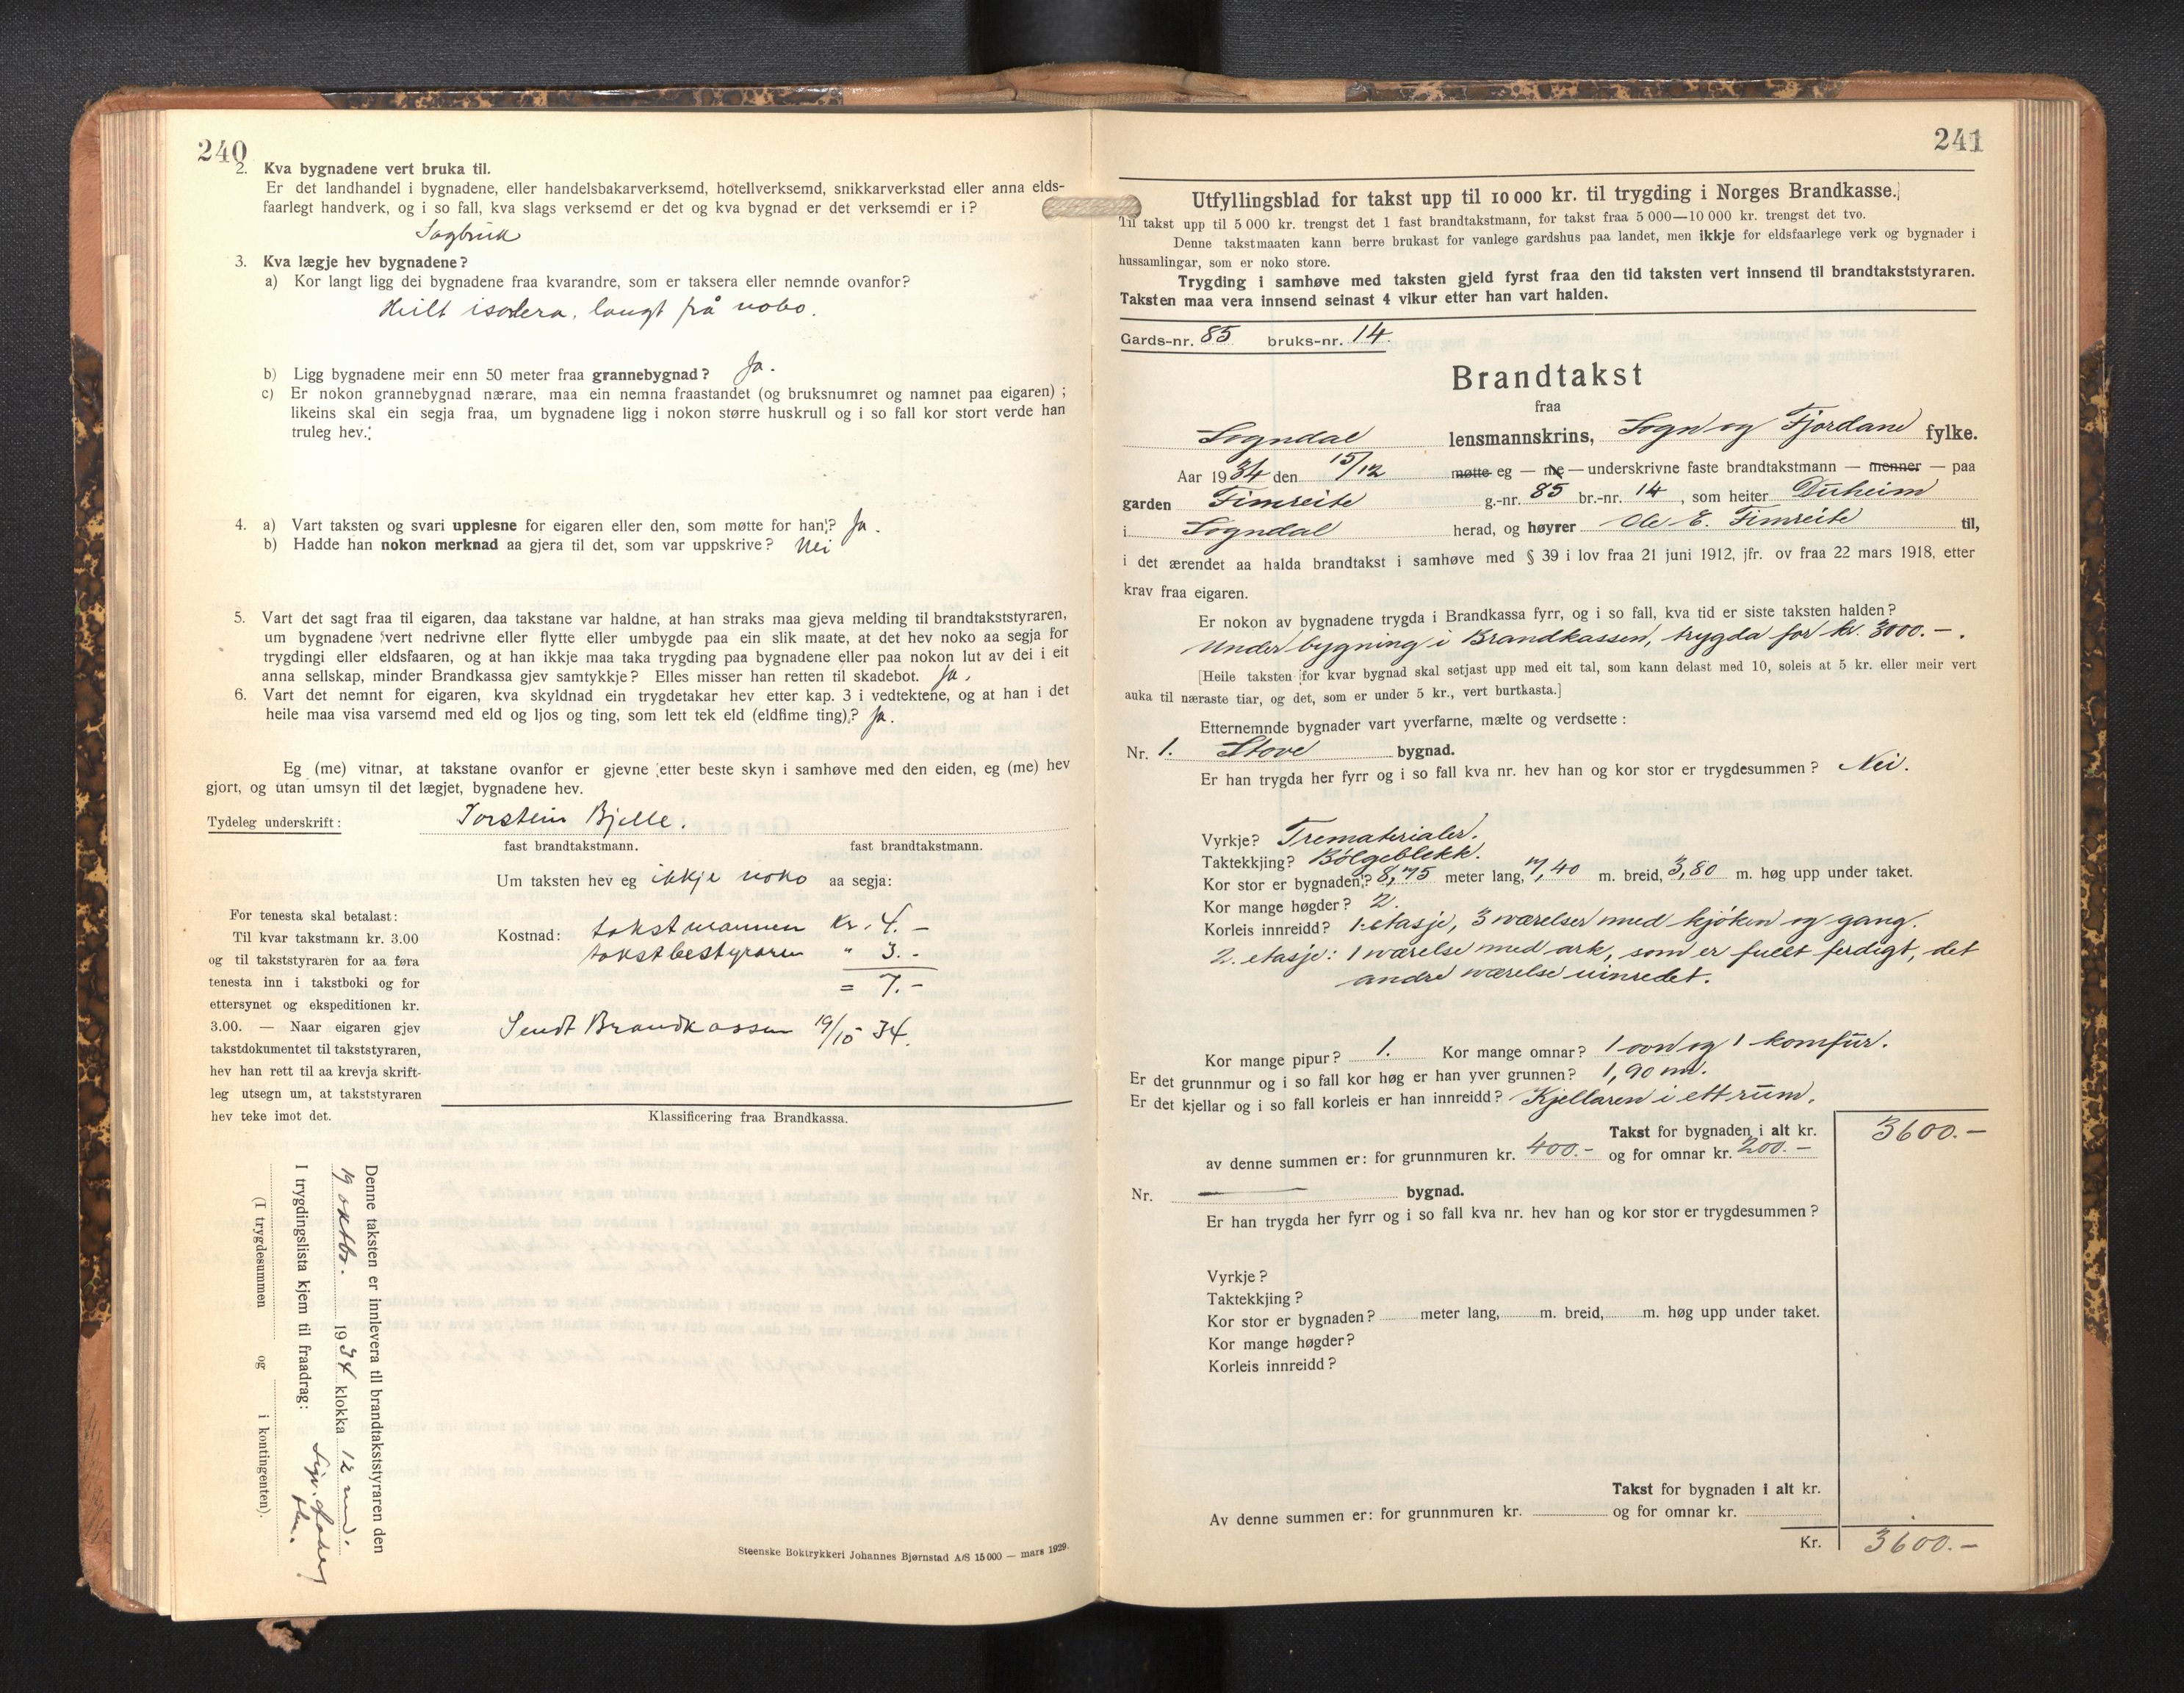 240
2. Kva bygnadene vert bruka til.
Er det landhandel i bygnadene, eller handelsbakarverksemd, hotellverksemd, snikkarverkstad eller anna elds-
faarlegt handverk, og i so fall, kva slags verksemd er det og kva bygnad er det verksemdi er i?
Sagbruk
3. Kva lægje hev bygnadene?
a) Kor langt ligg dei bygnadene fraa kvarandre, som er taksera eller nemnde ovanfor?
Heilt isolera, langt frå nobo.
b) Ligg bygnadene meir enn 50 meter fraa grannebygnad? Ja.
c) Er nokon grannebygnad nærare, maa ein nemna fraastandet (og bruksnumret og namnet paa eigaren);
likeins skal ein segja fraa, um bygnadene ligg i nokon større huskrull og i so fall kor stort verde han
truleg hev.
4. a) Vart taksten og svari upplesne for eigaren eller den, som møtte for han? Ja.
b) Hadde han nokon merknad aa gjera til det, som var uppskrive? Nei
5. Vart det sagt fraa til eigaren, daa takstane var haldne, at han straks maa gjeva melding til brandtakststyraren,
um bygnadene vert nedrivne eller flytte eller umbygde paa ein slik maate, at det hev noko aa segja for
trygdingi eller eldsfaaren, og at han ikkje maa taka trygding paa bygnadene eller paa nokon lut av dei i eit
anna sellskap, minder Brandkassa gjev samtykkje? Elles misser han retten til skadebot. Ja.
6. Vart det nemnt for eigaren, kva skyldnad ein trygdetakar hev etter kap. 3 i vedtektene, og at han i det
heile maa visa varsemd med eld og ljos og ting, som lett tek eld (eldfime ting)? Ja.
Eg (me) vitnar, at takstane ovanfor er gjevne etter beste skyn i samhøve med den eiden, eg (me) hev
gjort, og utan umsyn til det lægjet, bygnadene hev.
Tydeleg underskrift: Torstein Bjelle.
fast brandtakstmann. fast brandtakstmann.
Um taksten hev eg ikkje noko aa segja:
For tenesta skal betalast:
Til kvar takstmann kr. 3.00
og til takststyraren for aa føra
tenesta inn i takstboki og for
ettersynet og ekspeditionen kr.
3.00. — Naar eigaren gjev
takstdokumentet til takststyraren,
hev han rett til aa krevja skrift-
leg utsegn um, at takststyraren
hev teke imot det.
Kostnad: takstmannen kr. 4.-
takstbestyraren " 3.-
= 7.-
Sendt Brandkassen 19/10 34.
Klassificering fraa Brandkassa.
Denne taksten er innlevera til brandtakststyraren den
19 oktbr. 1934 klokka 12 md.
I trygdingslista kjem til fraadrag:
(I trygdesummen og i kontingenten).
Steenske Boktrykkeri Johannes Bjørnstad A/S 15000 — mars 1929.
241
Utfyllingsblad for takst upp til 10 000 kr. til trygding i Norges Brandkasse.
Til takst upp til 5 000 kr. trengst det 1 fast brandtakstmann, for takst fraa 5 000—10 000 kr. trengst det tvo.
Denne takstmaaten kann berre brukast for vanlege gardshus paa landet, men ikkje for eldsfaarlege verk og bygnader i
hussamlingar, som er noko store.
Trygding i samhøve med taksten gjeld fyrst fraa den tid taksten vert innsend til brandtakststyraren.
Taksten maa vera innsend seinast 4 vikur etter han vart halden.
Gards-nr. 85 bruks-nr. 14.
Brandtakst
fraa
Sogndal lensmannskrins, Sogn og Fjordane fylke.
Aar 1934 den 15/12 møtte eg — me — underskrivne faste brandtakstmann — menner — paa
garden Fimreite g.-nr. 85 br.-nr. 14, som heiter Duheim
i Sogndal herad, og høyrer Ole E. Fimreite til,
i det ærendet aa halda brandtakst i samhøve med § 39 i lov fraa 21 juni 1912, jfr. ov fraa 22 mars 1918, etter
krav fraa eigaren.
Er nokon av bygnadene trygda i Brandkassa fyrr, og i so fall, kva tid er siste taksten halden?
Under bygning i Brandkassen, trygda for kr. 3000.-.
[Heile taksten for kvar bygnad skal setjast upp med eit tal, som kann delast med 10, soleis at 5 kr. eller meir vert
auka til næraste tiar, og det, som er under 5 kr., vert burtkasta.]
Etternemnde bygnader vart yverfarne, mælte og verdsette:
Nr. 1. Stove bygnad.
Er han trygda her fyrr og i so fall kva nr. hev han og kor stor er trygdesummen? Nei.
Vyrkje? Trematerialer.
Taktekkjing? Bølgeblekk.
Kor stor er bygnaden? 8,75 meter lang, 7,40 m. breid, 3,80 m. høg upp under taket.
Kor mange høgder? 2.
Korleis innreidd? 1 etasje, 3 værelser med kjøken og gang.
2. etasje: 1 værelse med ark, som er fullt ferdigt, det
andre værelse uinredet.
Kor mange pipur? 1. Kor mange omnar? 1 ovn og 1 komfür.
Er det grunnmur og i so fall kor høg er han yver grunnen? 1,90 m.
Er det kjellar og i so fall korleis er han innreidd? Kjellaren i ett rum.
Takst for bygnaden i alt kr. 3600.-
av denne summen er: for grunnmuren kr. 400.- og for omnar kr. 200.-
Nr. — bygnad.
Er han trygda her fyrr og i so fall kva nr. hev han og kor stor er trygdesummen?
Vyrkje?
Taktekkjing?
Kor stor er bygnaden? meter lang, m. breid, m. høg upp under taket.
Kor mange høgder?
Korleis innreidd?
Takst for bygnaden i alt kr.
Av denne summen er: for grunnmuren kr. og for omnar kr.
Kr. 3600.-